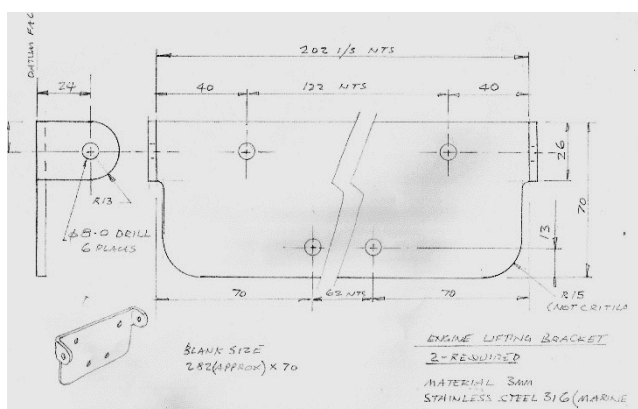 202 1/S NTS
24
40
122 NTS
40
26
70
13
R13
Ø8.0 DRILL
6 PLACES
70
62 NTS
70
R15
(NOT CRITICA
BLANK SIZE
282 (APPROX) x 70
ENGINE LIFTING BRACKET
2 - REQUIRED
MATERIAL 3MM
STAINLESS STEEL 316 (MARINE